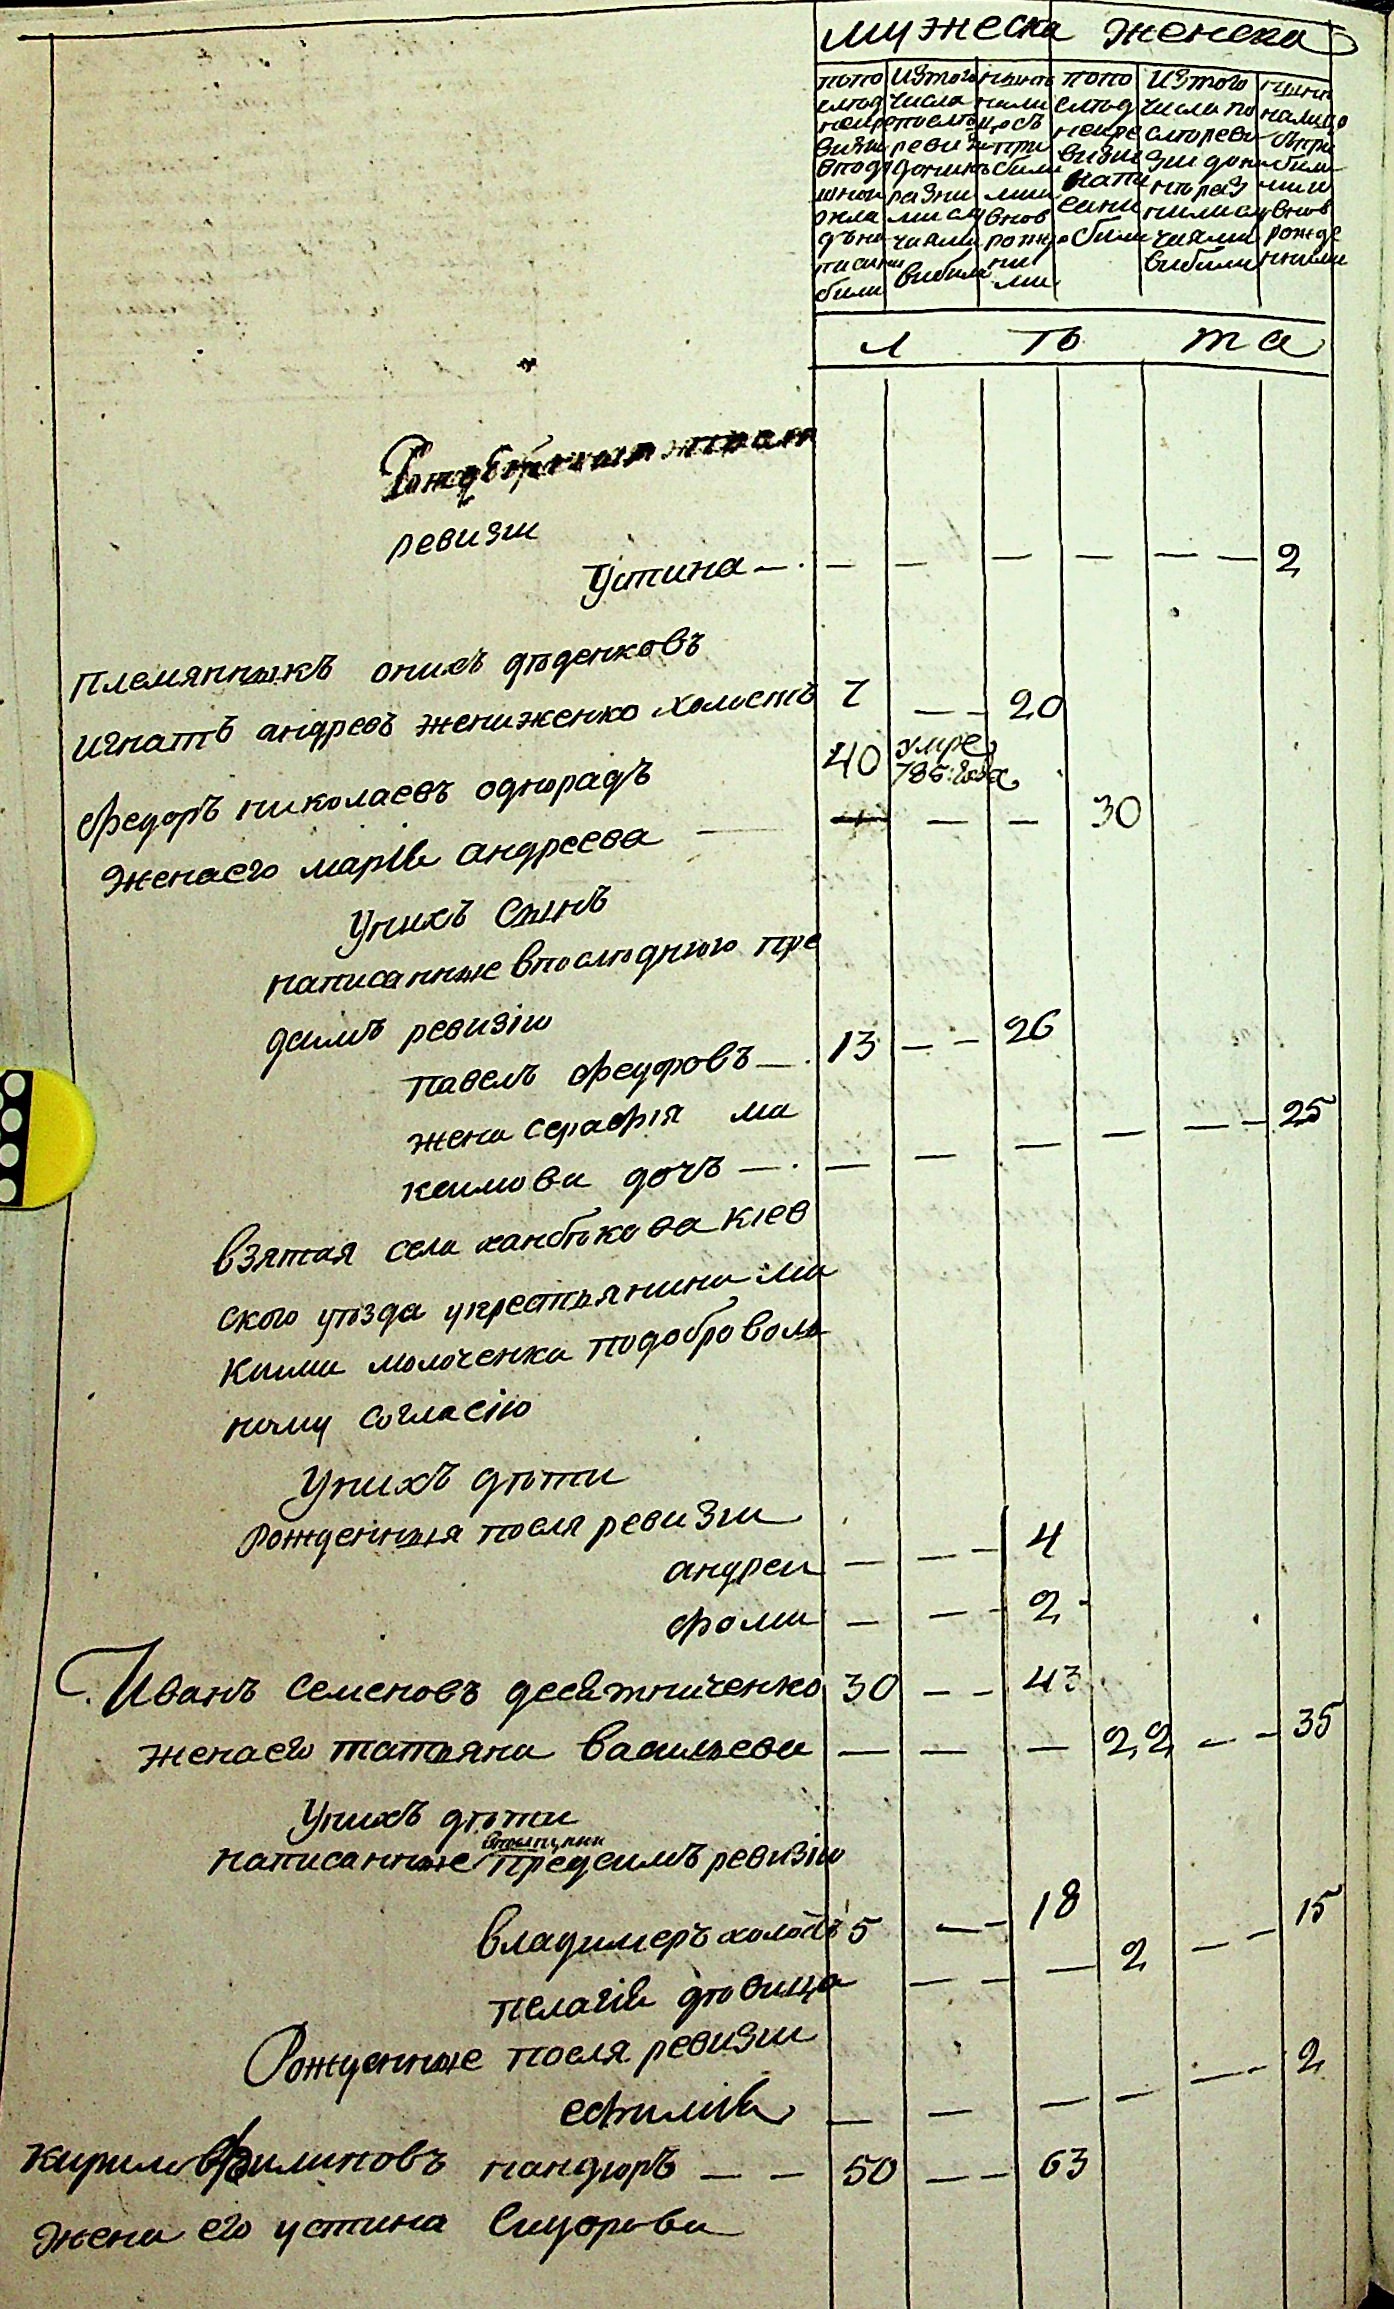 мужеска женска
попо
елѣд
неире
визiи
бнла
били
изтого
числа
послѣд
реви
разни
ми слу
чаями
вибили
нили
при
били
внов
рожде
ни
ми
попо
слѣд
неире
визии
напи
сани
били
изтого
числа по
слѣреви
зии до
разни
ми слу
чаями
вибили
налицо
били
ми и
внов
рожде
нними
лѣта
ревизии
Устина — . — — — — — — 2
племянникъ онихъ дѣденковъ
игнатъ андреевъ жениженко холостъ 7 — — 20
федоръ николаевъ однорадъ 40 умре 786: года
женаего марія андреева — — — 30
Унихъ сынъ
написанные впослѣднюю пре
дсимъ ревизію
павелъ федоровъ — . 13 — — 26
жена серафія ма
ксимова дочъ — . — — — — — — 25
взятая села ханбѣкова кіев
ского уѣзда укрестьянина ма
ксима молоченка подоброволь
ному согласію
Унихъ дѣти
Рожденныя посля ревизии
андреи — — — 4
фома — — — 2
Иванъ семеновъ десятниченко 30 — — 43
женаего татьяна васильева — — — 22 — — 35
Унихъ дѣти
написанные предсимъ ревизію
владимеръ холостъ 5 — — 18
пелагія дѣвица — — — 2 — — 15
Рожденные посля ревизии
ефимія — — — — — — 2
кирило филиповъ пандюръ — — 50 — — 63
жена его устина сидорова